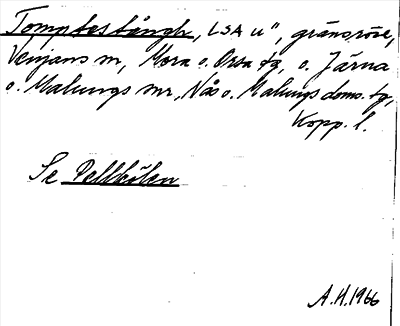 Tomptastångh, LSA u", gränsröse,
Venjans sn, Mora o. Orsa tg, o. Järna
o. Malungs snr, Nås o. Malungs doms. tg,
Kopp. l.
Se Pellkölen
A.H. 1966